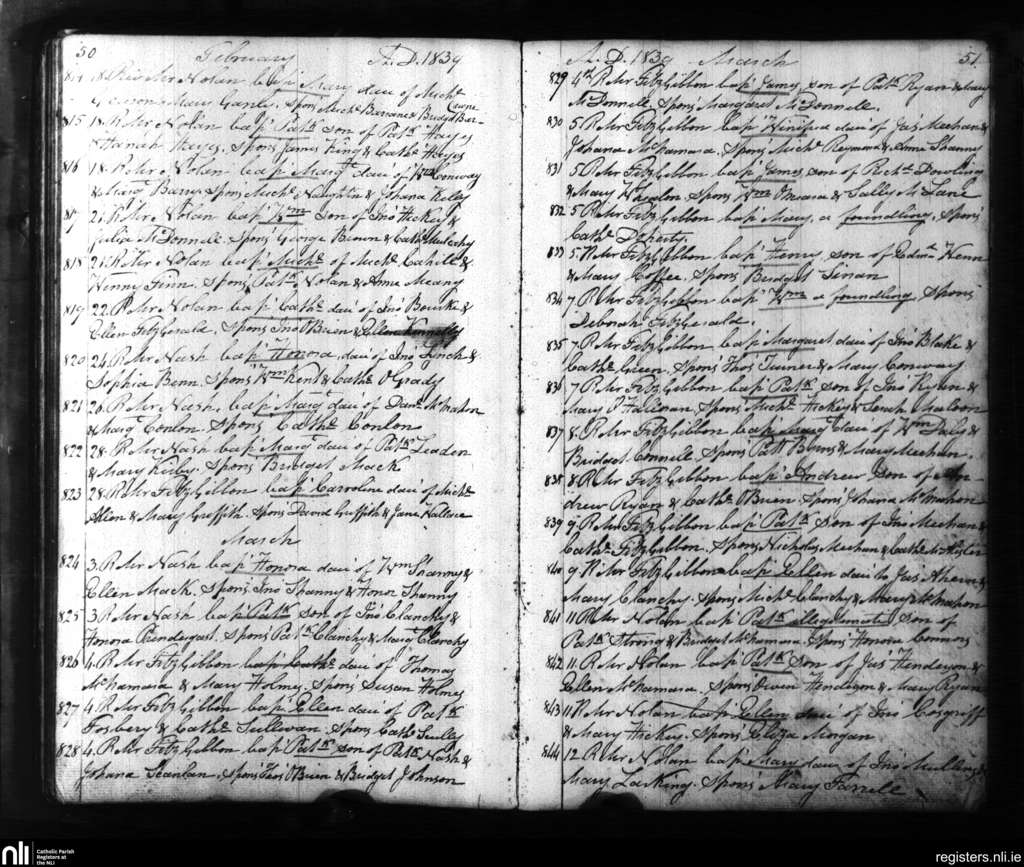 50 February A.D. 1839
814 18. Revd Mr Nolan bap. Mary daur of Michl
& Mary Ganly. Spons Michl Barrane & Bridgt Bar-
815 18. R. Mr Nolan bap. Patk son of Patk Hayes
& Hanah Hayes. Spons James King & Cathe Hayes
816 18. R. Mr Nolan bap. Margt daur of Wm Conway
& Margt Barry. Spons Michl Naughtin & Johana Kelly
817 21. R. Mr Nolan bap. Wm son of Jno Hickey &
Julia McDonnell. Spons George Brown & Cathe Mulcahy
818 21. R. Mr Nolan bap. Michl of Michl Cahill &
Winny Finn. Spons Patk Nolan & Anne Meany
819 22. R. Mr Nolan bap. Cathe daur of Jno Bourke &
Ellen FitzGerald. Spons Jno OBrien & Ellen Connolly
820 24. R. Mr Nash bap. Honora daur of Jno Lynch &
Sophia Benn. Spons Wm Kent & Cathe OGrady
821 26. R. Mr Nash bap. Margt daur of Danl McMahon
& Margt Conlon. Spons Cathe Conlon
822 28. R. Mr Nash bap. Margt daur of Patk Leaden
& Mary Kirby. Spons Bridget Mack
823 28. R. Mr FitzGibbon bap. Carroline daur of Michl
& Mary Griffith. Spons David Griffith & Jane Wallace
March
824 3. R. Mr Nash bap. Honora daur of Wm Shanny &
Ellen Mack. Spons Jno Shanny & Honor Shanny
825 3. R. Mr Nash bap. Patk son of Jno Clanchy &
Honora Prendergast. Spons Patk Clanchy & Margt Clanchy
826 4. R. Mr FitzGibbon bap. Cathe daur of Thomas
McNamara & Mary Holmes. Spons Susan Holmes
827 4. R. Mr FitzGibbon bap. Ellen daur of Patk
Fosbery & Cathe Sullivan. Spons Cathe Scully
828 4. R. Mr FitzGibbon bap. Patk son of Patk Nash &
Johana Scanlan. Spons OBrien & Bridget Johnson
A.D. 1839 March 51
829 4th R. Mr FitzGibbon bap. James son of Patk Ryan & Mary
McDonnell. Spons Margaret McDonnell.
830 5. R. Mr FitzGibbon bap. Winifred daur of Jas Meehan &
Johana McNamara. Spons Michl & Anne Shanny
831 5. R. Mr FitzGibbon bap. James son of Richd Dowling
& Mary Whealon. Spons Wm OMeara & Sally McLane
832 5. R. Mr FitzGibbon bap. Mary, a foundling. Spons
Cathe Doherty.
833 5. R. Mr FitzGibbon bap. Henry son of Edmd Wenn
& Mary Coffee. Spons Bridget Linan
834 7. R. Mr FitzGibbon bap. Wm a foundling. Spons
Deborah FitzGerald.
835 7. R. Mr FitzGibbon bap. Margaret daur of Jno Blake &
Cathe Green. Spons Thos Turner & Mary Conway
836 7. R. Mr FitzGibbon bap. Patk son of Jno Ryan &
Mary OHalloran. Spons Michl Hickey & Sarah Malcon
837 8. R. Mr FitzGibbon bap. Margt daur of Wm Daly &
Bridget Connell. Spons Patt Byrns & Mary Meehan.
838 8. R. Mr FitzGibbon bap. Andrew son of An-
drew Ryan & Cathe OBrien. Spons Johana McMahon
839 9. R. Mr FitzGibbon bap. Patk son of Jno Meehan &
Cathe FitzGibbon. Spons Nicholas Meehan & Cathe McAlister
840 9. R. Mr FitzGibbon bap. Ellen daur to Jas Ahern &
Mary Clanchy. Spons Michl Clanchy & Mary McMahon
841 11. R. Mr Nolan bap. Patk illegitimate son of
Patk Strong & Bridget McNamara. Spons Honora Connors
842 11. R. Mr Nolan bap. Patk son of Jas Henderson &
Ellen McNamara. Spons Owen Henderson & Mary Ryan
843 11. R. Mr Nolan bap. Ellen daur of Jno Cosgriff
& Mary Hickey. Spons Eliza Morgan
844 12. R. Mr Nolan bap. Mary daur of Jno Mullins &
Mary Larking. Spons Mary Farrell
nli Catholic Parish
Registers at
the NLI
registers.nli.ie